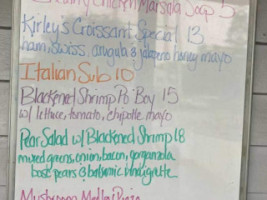 Creamy Chicken Marsala Soup 5
Kirley's Croissant Special 13
ham, swiss, arugula & jalapeno honey mayo
Italian Sub 10
Blackened Shrimp Po' Boy 15
w/ lettuce, tomato, chipotle mayo
Pear Salad w/ Blackened Shrimp 18
mixed greens, onion, bacon, gorgonzola
bosc pears & balsamic vinaigrette
Mushroom Medley Pizza